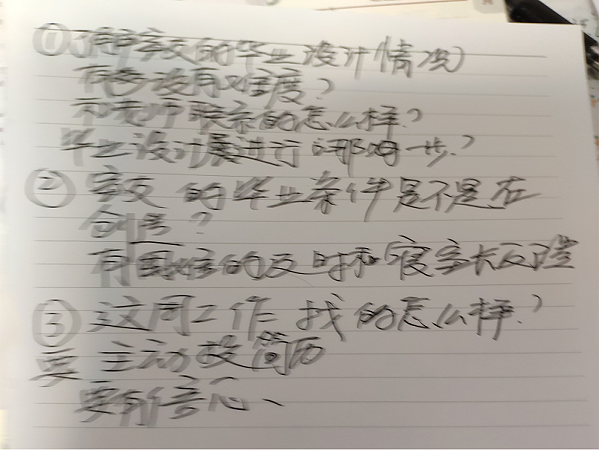 ①询问室友的毕业设计情况
有没有难度?
和老师联系的怎么样?
毕业设计进行哪一步?
② 室友的毕业条件是不是在
创造?
有困难的及时和寝室长反馈
③ 这周工作找的怎么样?
要主动投简历
要有信心、